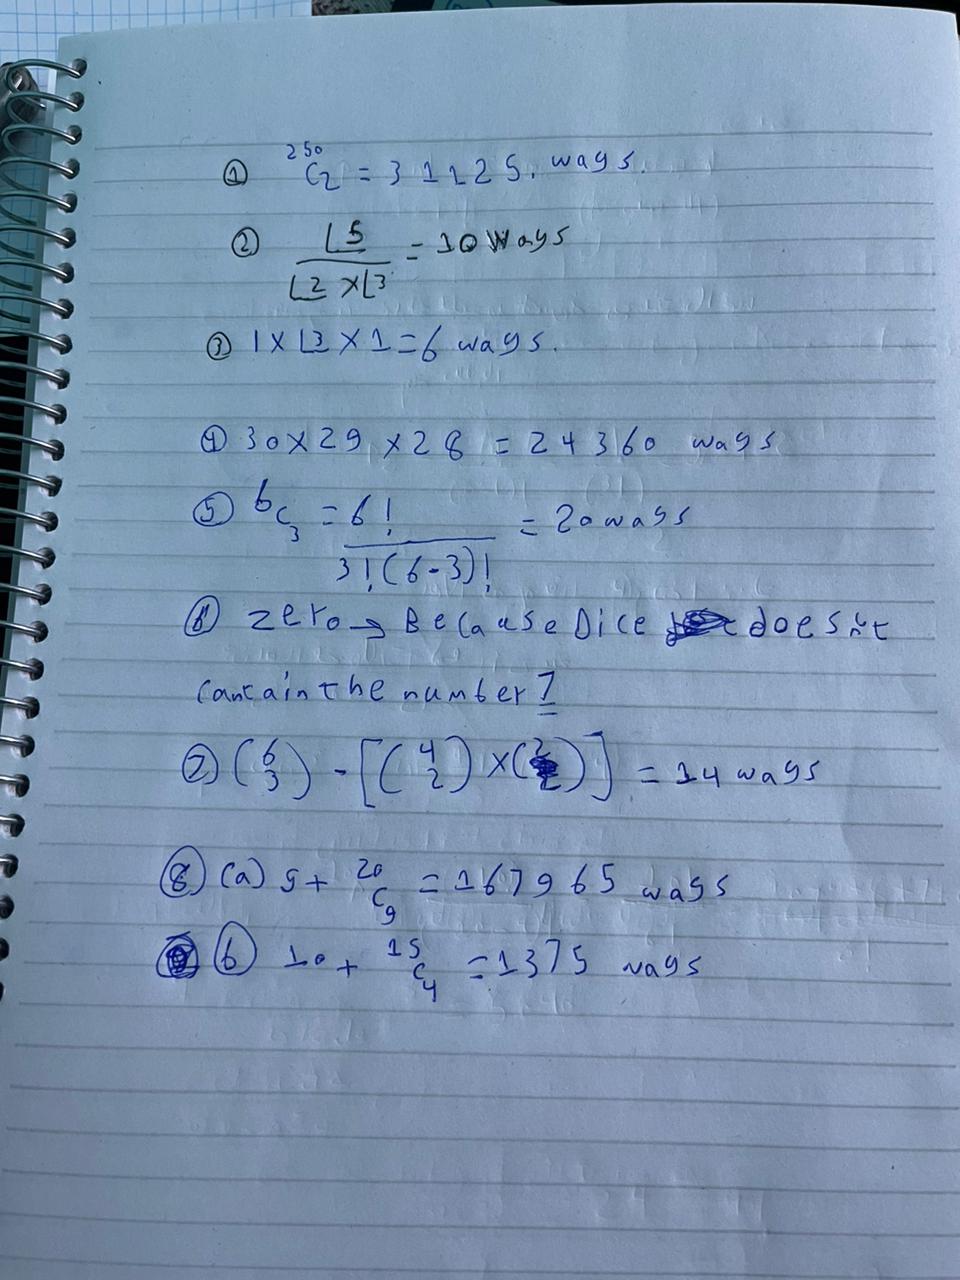 ① ²⁵⁰C₂ = 31125. ways.
② ⌊5 / ⌊2 × ⌊3 = 10 Ways
③ 1 × ⌊3 × 1 = 6 ways.
④ 30 × 29 × 28 = 24360 ways
⑤ ⁶C₃ = 6! / 3!(6-3)! = 20 ways
⑥ zero → Because Dice doesn't
contain the number 7
⑦ (6 3) - [(4 2) × (2 )] = 14 ways
⑧ (a) 5 + ²⁰C₉ = 167965 ways
ⓑ 10 + ¹⁵C₄ = 1375 ways